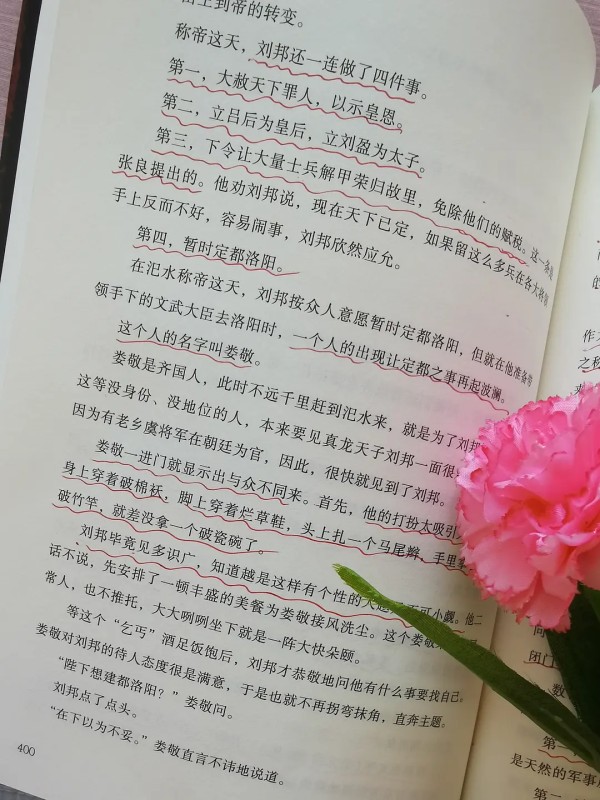 出上到帝的转变。
称帝这天，刘邦还一连做了四件事。
第一，大赦天下罪人，以示皇恩。
第二，立吕后为皇后，立刘盈为太子。
第三，下令让大量士兵解甲荣归故里，免除他们的赋税。这一条是
张良提出的。他劝刘邦说，现在天下已定，如果留这么多兵在各大将领
手上反而不好，容易闹事，刘邦欣然应允。
第四，暂时定都洛阳。
在汜水称帝这天，刘邦按众人意愿暂时定都洛阳，但就在他准备带
领手下的文武大臣去洛阳时，一个人的出现让定都之事再起波澜。
这个人的名字叫娄敬。
娄敬是齐国人，此时不远千里赶到汜水来，就是为了刘邦
这等没身份、没地位的人，本来要见真龙天子刘邦一面很
因为有老乡虞将军在朝廷为官，因此，很快就见到了刘邦。
娄敬一进门就显示出与众不同来。首先，他的打扮太吸引人
身上穿着破棉袄，脚上穿着烂草鞋，头上扎一个马尾辫，手里
破竹竿，就差没拿一个破瓷碗了。
刘邦毕竟见多识广，知道越是这样有个性的人越 不可小觑。他二
话不说，先安排了一顿丰盛的美餐为娄敬接风洗尘。这个娄敬
常人，也不推托，大大咧咧坐下就是一阵大快朵颐。
等这个“乞丐”酒足饭饱后，刘邦才恭敬地问他有什么事要找自己。
娄敬对刘邦的待人态度很是满意，于是也就不再拐弯抹角，直奔主题。
“陛下想建都洛阳？”娄敬问。
刘邦点了点头。
“在下以为不妥。”娄敬直言不讳地说道。
400
作
之称
来
问
闭门
数
第一
是天然的军事
第一